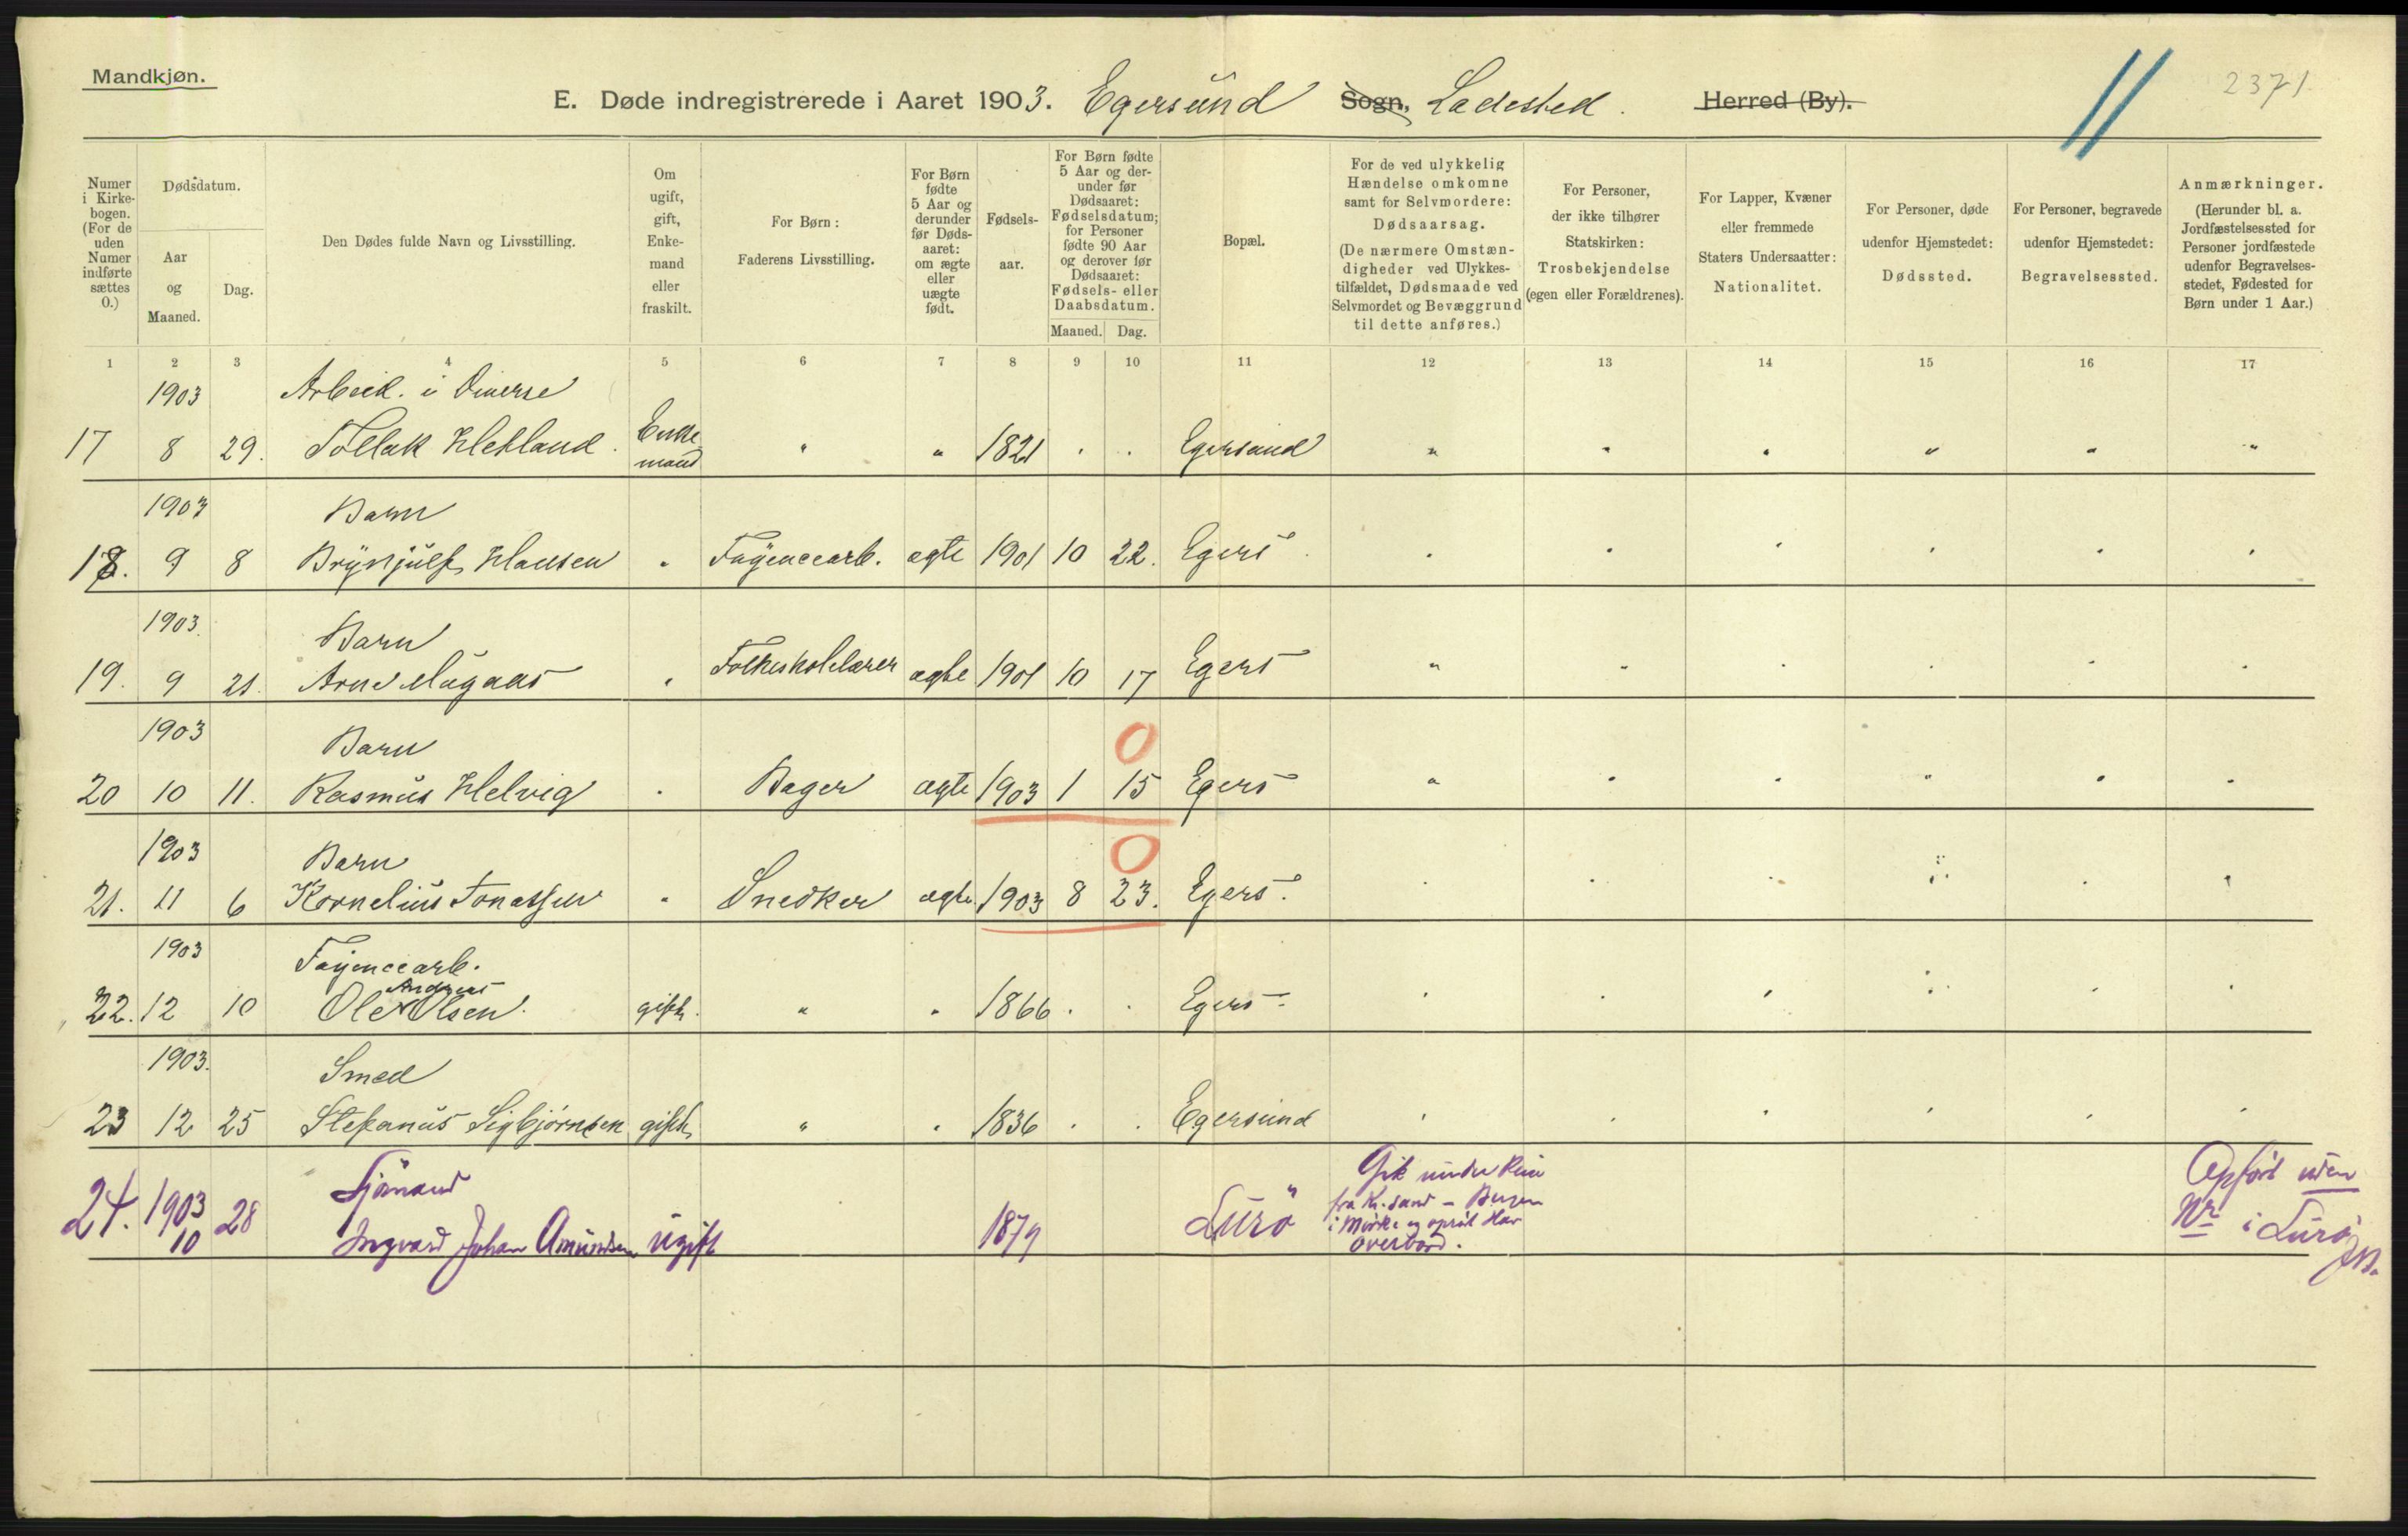 Mandkjøn.
E. Døde indregistrerede i Aaret 1903. Egersund Sogn, Ladested. Herred (By).
2371
Numer i Kirke-bogen. (For de uden Numer indførte sættes 0.)
Dødsdatum.
Aar og Maaned.
Dag.
Den Dødes fulde Navn og Livsstilling.
Om ugift, gift, Enke-mand eller fraskilt.
For Børn: Faderens Livsstilling.
For Børn fødte 5 Aar og derunder før Døds-aaret: om ægte eller uægte født.
Fødsels-aar.
For Børn fødte 5 Aar og der-under før Dødsaaret: Fødselsdatum; for Personer fødte 90 Aar og derover før Dødsaaret: Fødsels- eller Daabsdatum.
Maaned. Dag.
Bopæl.
For de ved ulykkelig Hændelse omkomne samt for Selvmordere: Dødsaarsag. (De nærmere Omstæn-digheder ved Ulykkes-tilfældet, Dødsmaade ved Selvmordet og Bevæggrund til dette anføres.)
For Personer, der ikke tilhører Statskirken: Trosbekjendelse (egen eller Forældrenes).
For Lapper, Kvæner eller fremmede Staters Undersaatter: Nationalitet.
For Personer, døde udenfor Hjemstedet: Dødssted.
For Personer, begravede udenfor Hjemstedet: Begravelsessted.
Anmærkninger. (Herunder bl. a. Jordfæstelsessted for Personer jordfæstede udenfor Begravelses-stedet, Fødested for Børn under 1 Aar.)
1 2 3 4 5 6 7 8 9 10 11 12 13 14 15 16 17
1903 Arbeid. i Diverse
17 8 29. Tollak Hetland. Enke-mand " " 1821 . . Egersund " " " " " "
1903 Barn
18. 9 8 Brynjulf Hansen " Fayencearb. ægte 1901 10 22. Egers.
1903. Barn
19. 9 21. Arne " Folkeskolelærer ægte 1901 10 17 Egers
1903 Barn 0
20 10 11. Rasmus Helvig " Bager ægte 1903 1 15 Egers
1903 Barn 0
21. 11 6 Kornelius Jonassen " Snedker ægte 1903 8 23. Egers.
1903 Fayencearb.
Andreas
22. 12 10 Ole Olsen. gift. " " 1866 . . Egers.
1903. Smed
23 12 25 Stefanus Sigbjørnsen gift " " 1836 . . Egersund
24. 1903 10 28 Sjömand
Ingvard Johan Amundsen ugift 1879 Lurö
Gik under Reise
fra Kr.sand - Bergen
i Mörke og oprört Hav
overbord.
Opfört uden
Nr i Lurö